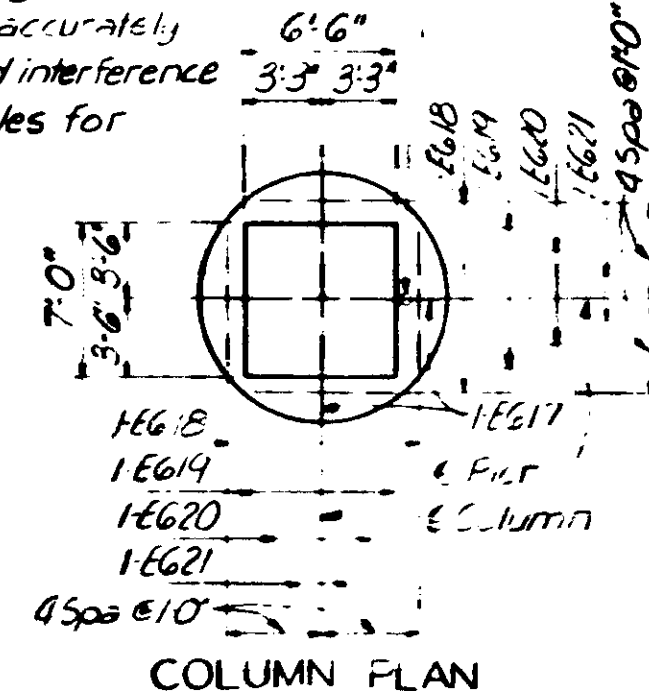 accurately
interference
for
6'-6"
3'-3" 3'-3"
1-E618
E619
1-E620
1-E621
4 Spa @ 1'-0"
7'-0"
3'-6" 3'-6"
1-E617
1-E618
1-E619
1-E620
1-E621
4 Spa @ 1'-0"
℄ Pier
℄ Column
COLUMN PLAN